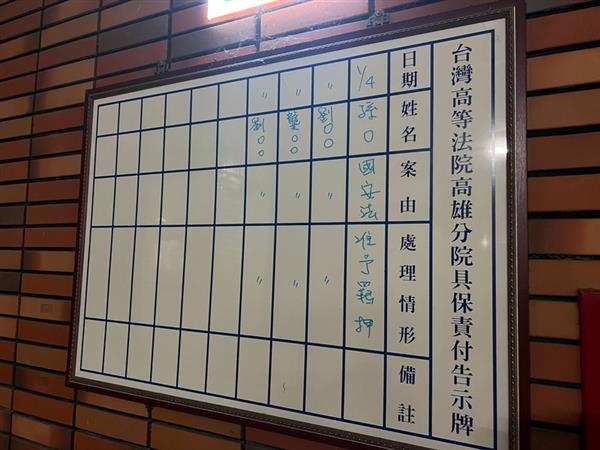 台灣高等法院高雄分院具保責付告示牌
日期 姓名 案由 處理情形 備註
1/4 孫〇 國安法 准予羈押
〃 劉〇〇 〃 〃
〃 龔〇〇 〃 〃
〃 劉〇〇 〃 〃